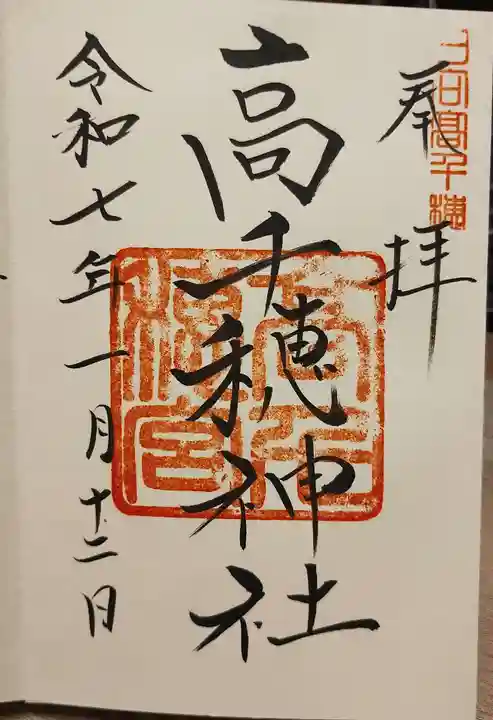 奉拝
日向高千穂
高千穂神社
高千穂宮
令和七年一月十二日